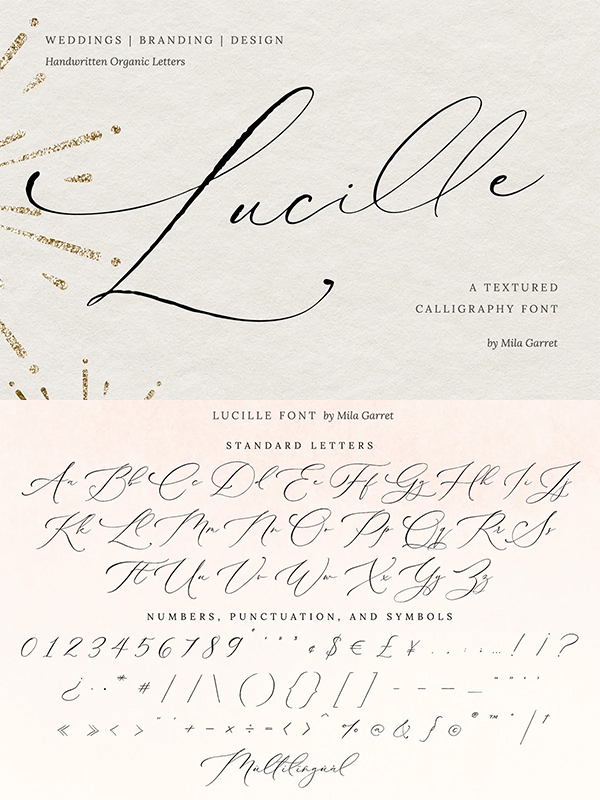 WEDDINGS | BRANDING | DESIGN
Handwritten Organic Letters
Lucille
A TEXTURED
CALLIGRAPHY FONT
by Mila Garret
LUCILLE FONT by Mila Garret
STANDARD LETTERS
Aa Bb Cc Dd Ee Ff Gg Hh Ii Jj
Kk Ll Mm Nn Oo Pp Qq Rr Ss
Tt Uu Vv Ww Xx Yy Zz
NUMBERS, PUNCTUATION, AND SYMBOLS
0 1 2 3 4 5 6 7 8 9 ¢ $ € £ ¥ . , : ; … ! ¡ ?
¿ · • * # / | \ ( ) { } [ ] - – — _
« » ‹ › " ' + − × ÷ = < > ^ % @ & ∫ © ® ™ ° | †
Multilingual